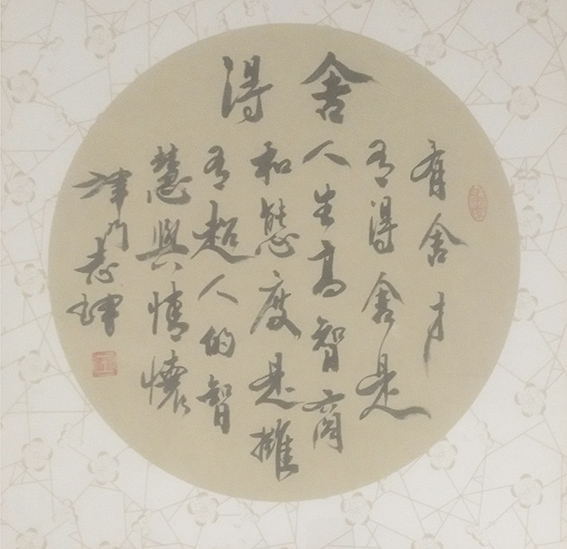 舍得
有舍才
有得舍是
人生高智商
和態度是擁
有超人的智
慧與情懷
津门志